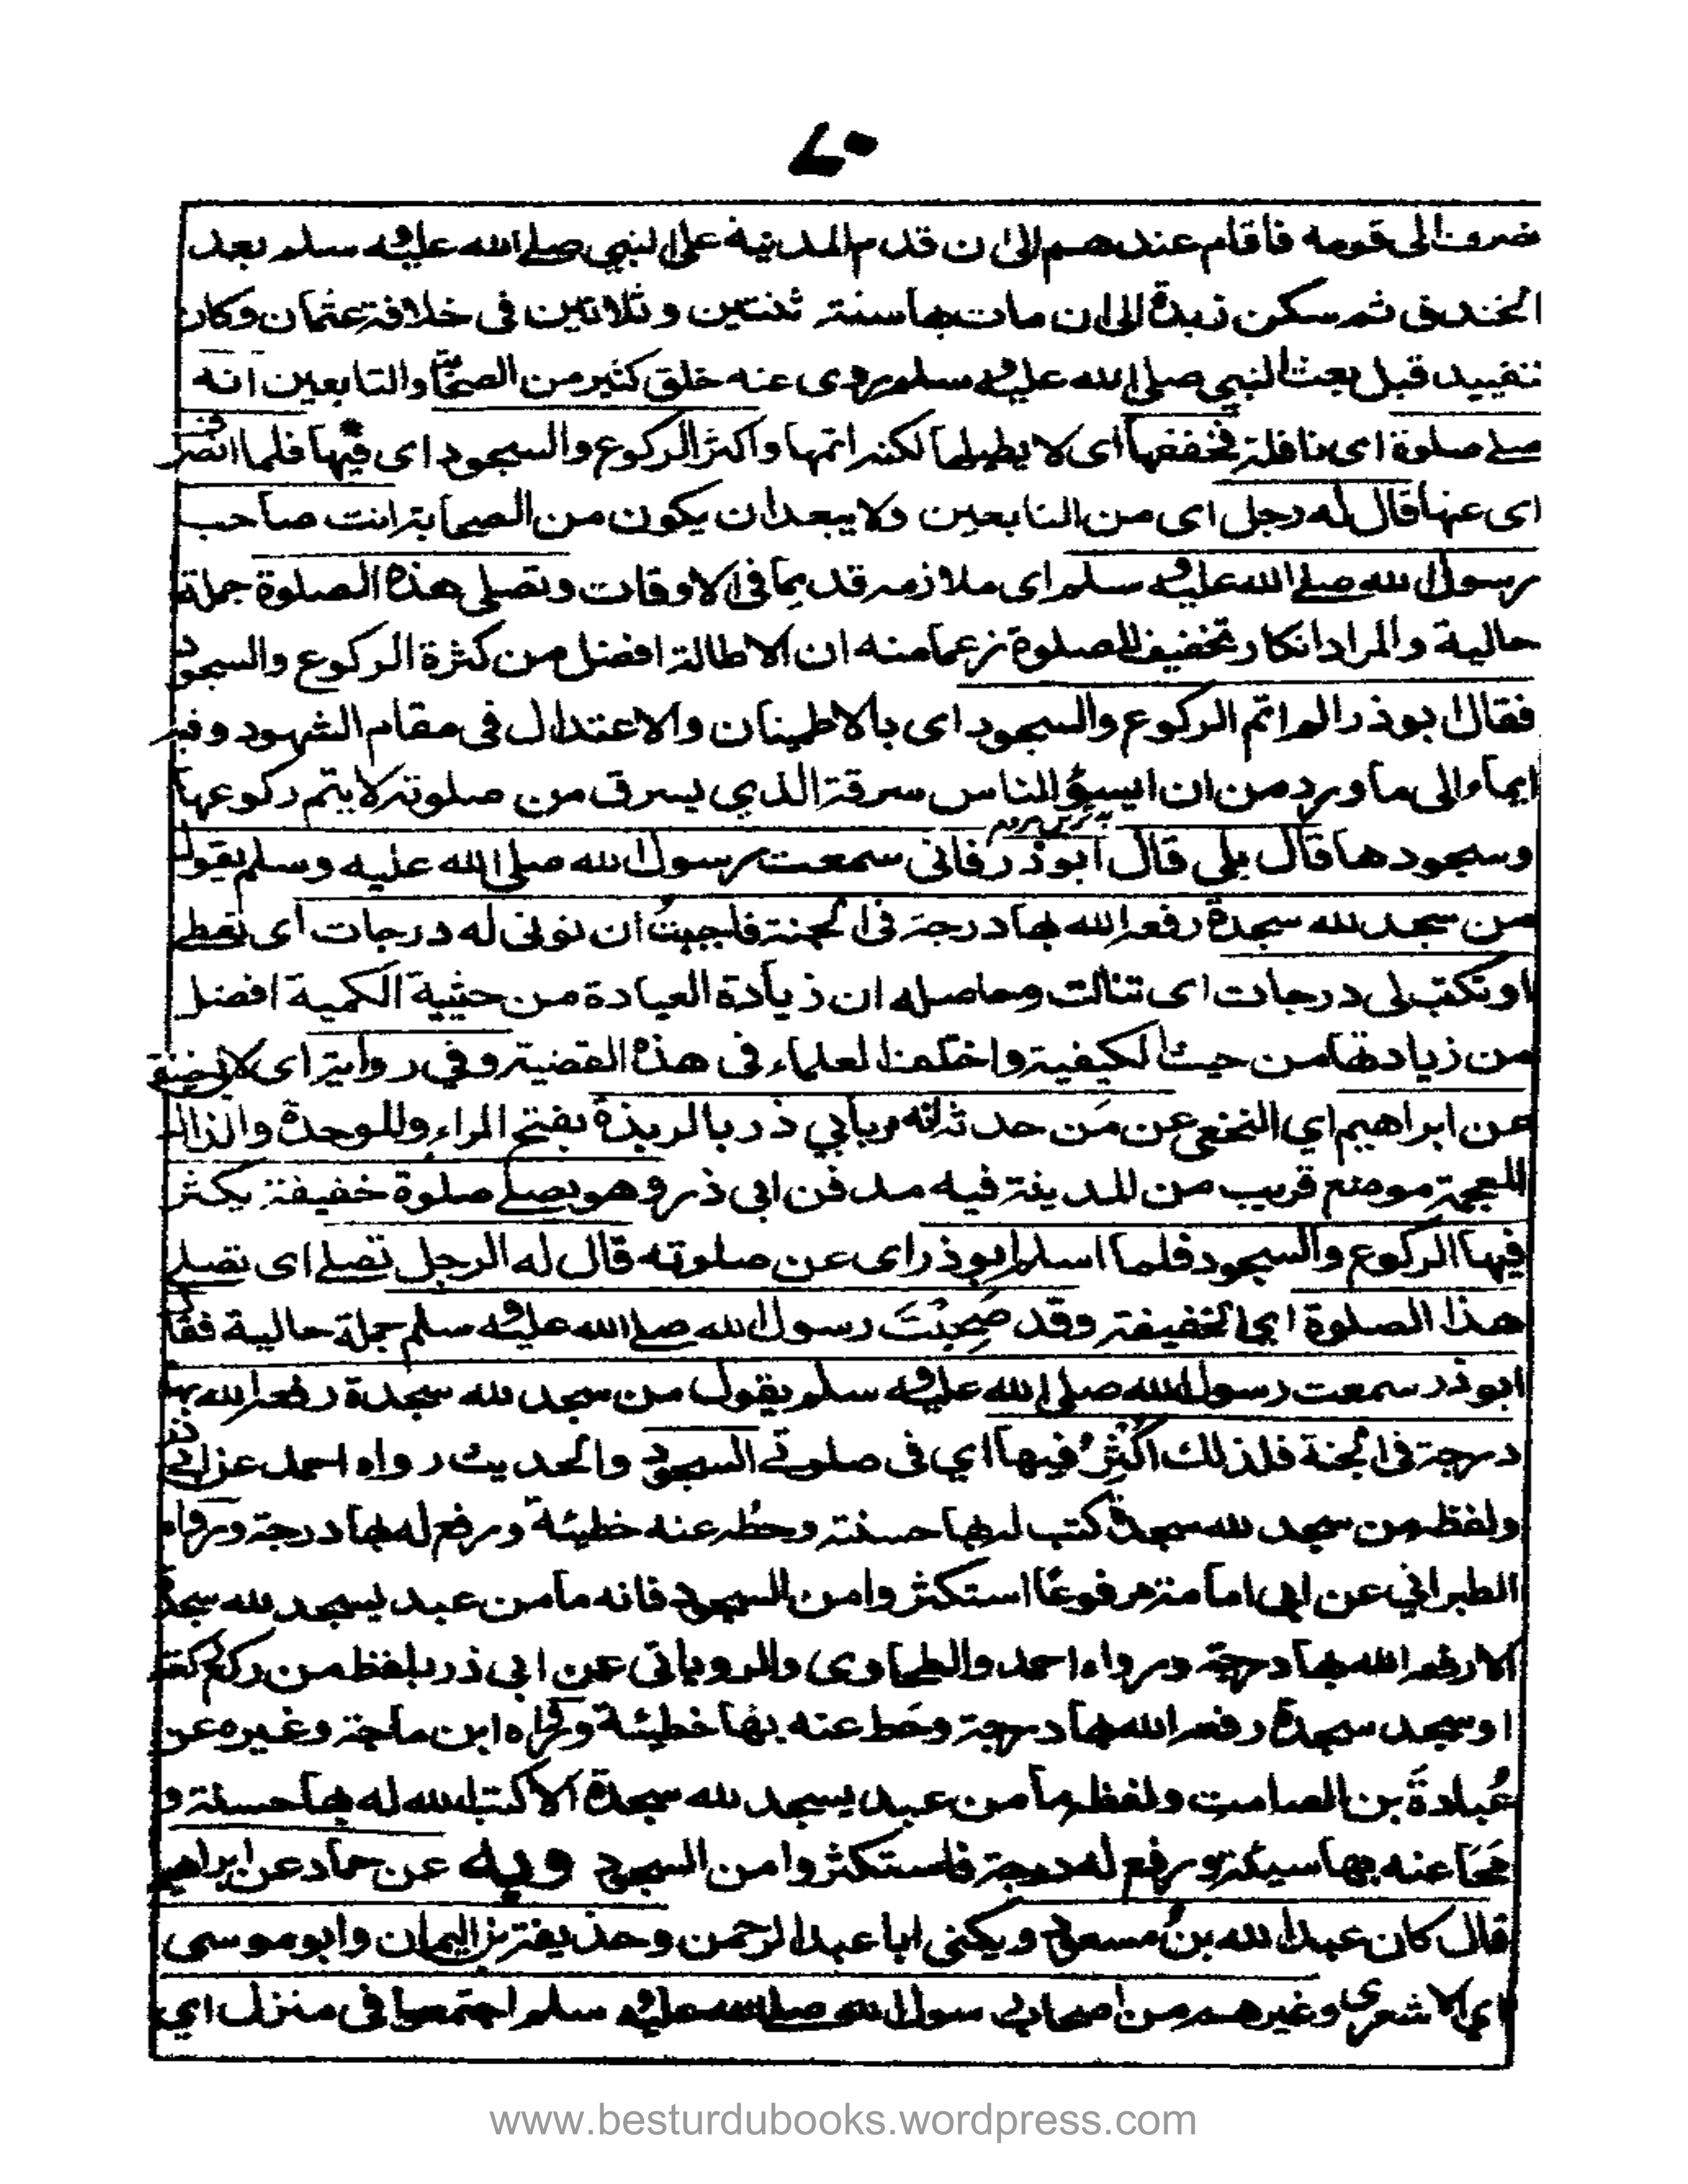 ٧٠
انصرف الى قومه فاقام عندهم الى ان قدم المدينة على النبي صلى الله عليه وسلم بعد
الخندق ثم سكن زبدة الى ان مات بها سنة ثنتين وثلاثين فى خلافة عثمان وكان
قبل بعث النبي صلى الله عليه وسلم روى عنه خلق كثير من الصحابة والتابعين انه
صلى صلوة اى نافلة فخففها اى لا يطيلها لكنه اتمها واكثر الركوع والسجود اى فيها فلما انصرف
اى عنها قال له رجل اى من التابعين ولا يبعد ان يكون من الصحابة انت صاحب
رسول الله صلى الله عليه وسلم اى ملازمه قديما فى الاوقات وتصلى هذه الصلوة جملة
حالية والمراد انكار تخفيف الصلوة زعما منه ان الاطالة افضل من كثرة الركوع والسجود
فقال ابو ذر الم اتم الركوع والسجود اى بالاطمينان والاعتدال فى مقام الشهود وفيه
ايماء الى ما ورد من ان اسوء الناس سرقة الذي يسرق من صلوته لا يتم ركوعها
وسجودها قال بلى قال ابو ذر فانى سمعت رسول الله صلى الله عليه وسلم يقول
من سجد لله سجدة رفعه الله بها درجة فى الجنة فاحببت ان توتى له درجات اى تعطى
او تكتب لى درجات اى تنالت وحاصله ان زيادة العبادة من حيثية الكمية افضل
من زيادتها من حيث الكيفية واختلف العلماء فى هذه القضية وفي رواية اى لابى حنيفة
عن ابراهيم اي النخعي عن مَن حدثه انه مر بابي ذر بالربذة بفتح الراء والموحدة والذال
المعجمة موضع قريب من المدينة فيه مدفن ابى ذر وهو يصلى صلوة خفيفة يكثر
فيها الركوع والسجود فلما اسلم ابو ذر اى عن صلوته قال له الرجل تصلى اى تصلى
هذا الصلوة اى الخفيفة وقد صَحِبْتَ رسول الله صلى الله عليه وسلم جملة حالية فقال
ابو ذر سمعت رسول الله صلى الله عليه وسلم يقول من سجد لله سجدة رفعه الله بها
درجة فى الجنة فلذلك اكثر فيها اي فى صلوتى السجود والحديث رواه احمد عن ابى ذر
ولفظه من سجد لله سجدة كتب له بها حسنة وحط عنه خطيئة ورفع له بها درجة ورواه
الطبراني عن ابى امامة مرفوعًا استكثروا من السجود فانه ما من عبد يسجد لله سجدة
الا رفعه الله بها درجة ورواه احمد والطحاوى والرويانى عن ابى ذر بلفظ من ركع ركعة
او سجد سجدة رفعه الله بها درجة وحَط عنه بها خطيئة ورواه ابن ماجة وغيره عن
عُبادةَ بن الصامت ولفظه ما من عبد يسجد لله سجدة الا كتب الله له بها حسنة و
مَحَا عنه بها سيئة ورفع له درجة فاستكثروا من السجود وبه عن حماد عن ابراهيم
قال كان عبد الله بن مسعود ويكنى ابا عبد الرحمن وحذيفة بن اليمان وابو موسى
اي الاشعري وغيرهم من اصحاب رسول الله صلى الله عليه وسلم اجتمعوا فى منزل اي
www.besturdubooks.wordpress.com